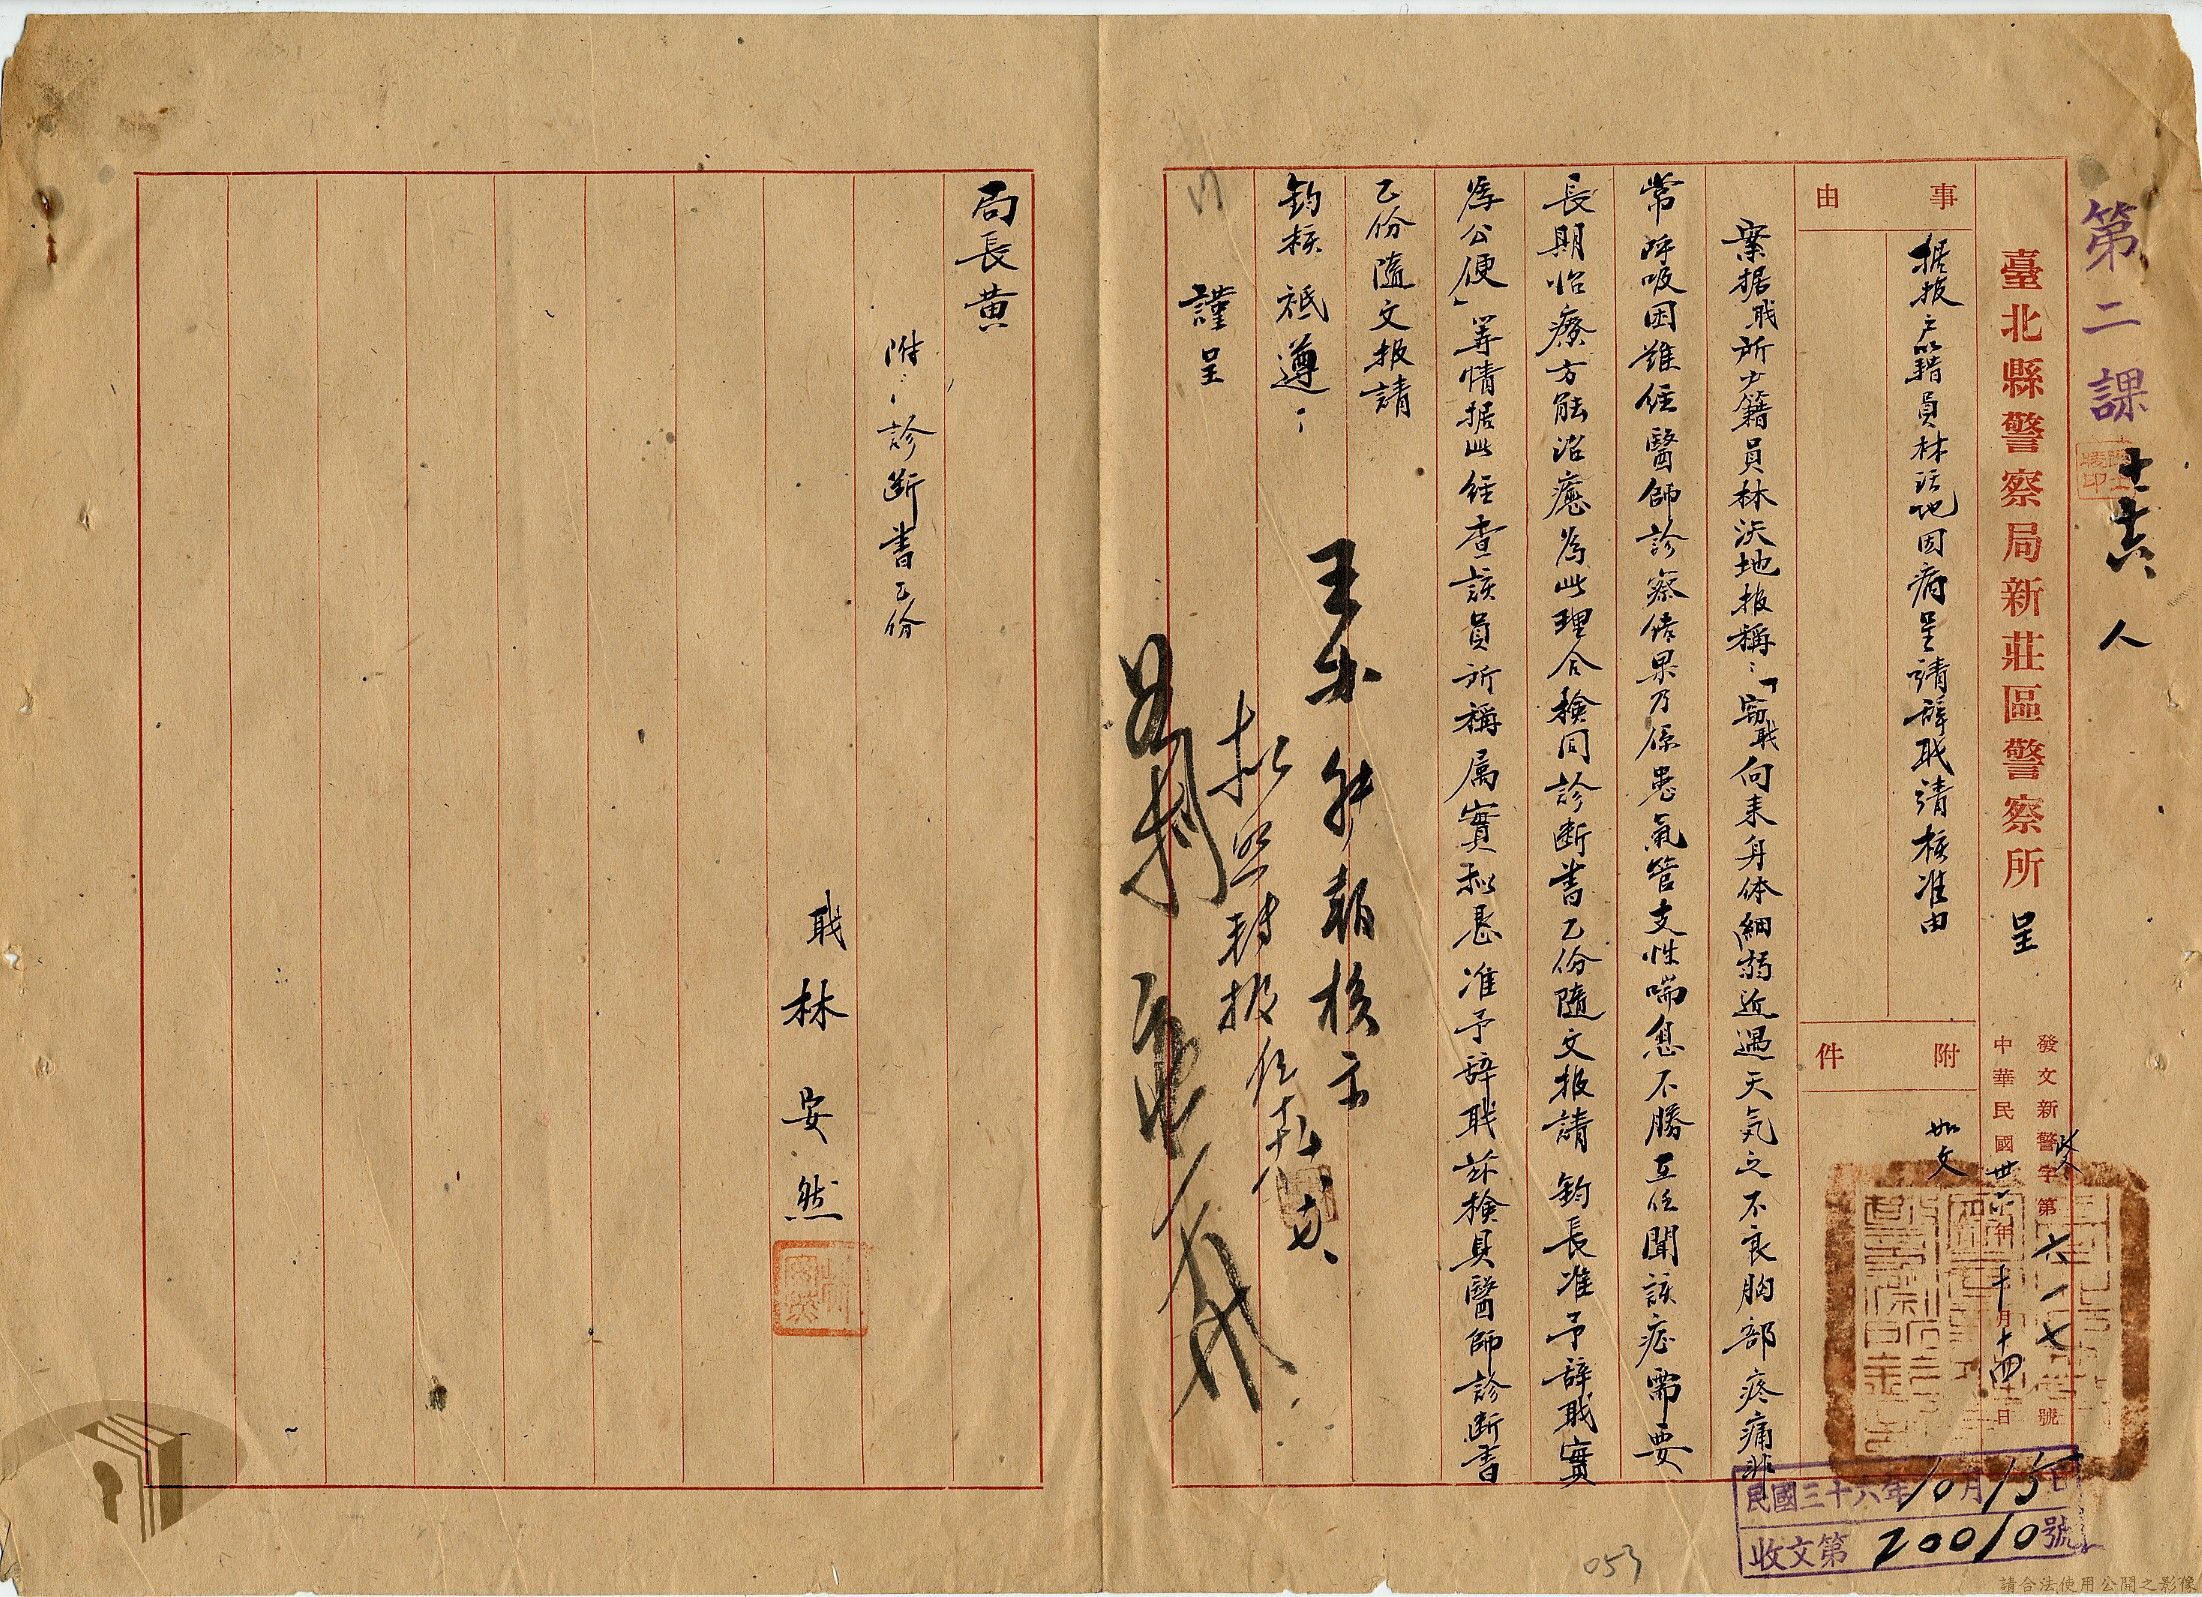 第二課
人
臺北縣警察局新莊區警察所 呈
發文新警字第六一七號
中華民國卅六年十月十四日
事由
据报户籍員林沃地因病呈請辞职請核准由
附件
如文
案据职所户籍員林沃地报稱：「窃职向来身体細弱近遇天気之不良胸部疼痛非
常呼吸困难经醫師診察結果乃係患氣管支性喘息不勝互任聞該症需要
長期治療方能治癒為此理合檢同診断書乙份隨文报請 鈞長准予辞职實
為公便」等情据此经查該員所稱属實拟恳准予辞职茲檢具醫師診断書
乙份隨文报請
鈞核祗遵：
謹呈
局長黄
附：診断書乙份
职林安然
核示
拟照转报
民國三十六年10月15日
收文第20010號
053
請合法使用公開之影像